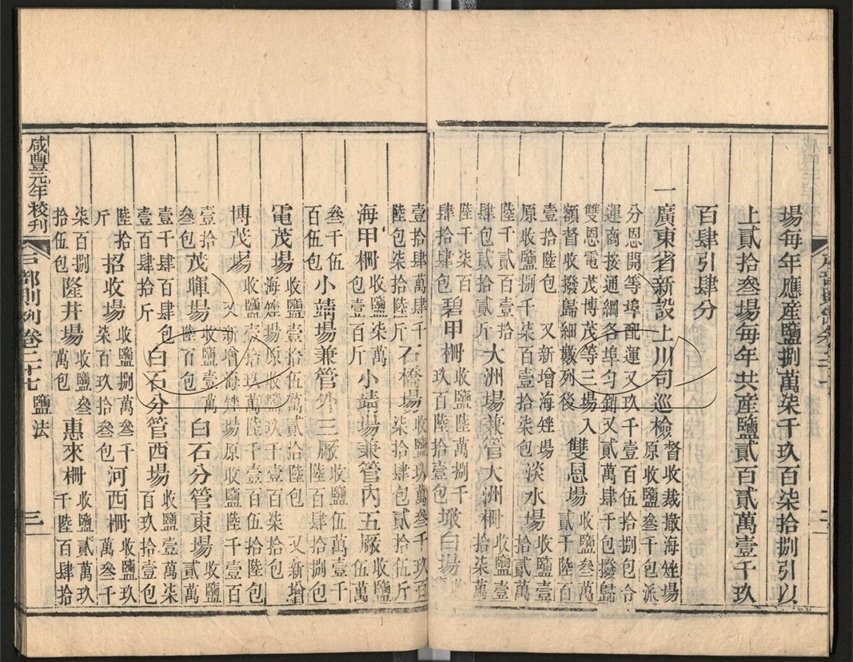 場每年應產鹽捌萬柒千玖百柒拾捌引以
上貳拾叁場每年共產鹽貳百貳萬壹千玖
百肆引肆分
一廣東省新設上川司巡檢督收裁撤海矬場原收鹽叁千包派
分恩開等埠配運又玖千壹百伍拾捌包合
運商接通綱各埠勻銷又貳萬肆千包撥歸
雙恩電茂博茂等三場入額督收撥歸細數列後雙恩場收鹽叁萬貳千陸百
壹拾陸包又新增海矬場原收鹽捌千柒百壹拾柒包淡水場收鹽壹拾貳萬
陸千貳百壹拾肆包貳拾捌斤大洲場兼管大洲柵收鹽壹拾柒萬
陸千柒百肆拾肆包碧甲柵收鹽陸萬捌千玖百陸拾壹包墩白場收鹽
壹拾肆萬肆千陸包柒拾陸斤石橋場收鹽玖萬叁千玖百柒拾肆包貳拾伍斤
海甲柵收鹽柒萬包壹百斤小靖場兼管內五厰收鹽伍萬
叁千伍百伍包小靖場兼管外三厰收鹽伍萬壹千陸百肆拾捌包
電茂場收鹽伍萬貳拾陸包又新增海矬場原收鹽壹千柒拾包
博茂場收鹽壹拾玖萬陸千壹百伍拾陸包又新增海矬場原收鹽陸千壹百
壹拾叁包茂暉場收鹽壹萬陸百包白石分管東場收鹽貳萬
壹千壹百肆包壹百肆拾斤白石分管西場收鹽壹萬柒百玖拾壹包
陸拾斤招收場收鹽捌萬叁千柒百玖拾叁包河西柵收鹽玖萬叁千
柒百捌拾伍包隆井場收鹽叁萬包惠來柵收鹽貳萬玖千陸百肆拾
咸豐元年校刊 戶部則例卷二十七 鹽法 三